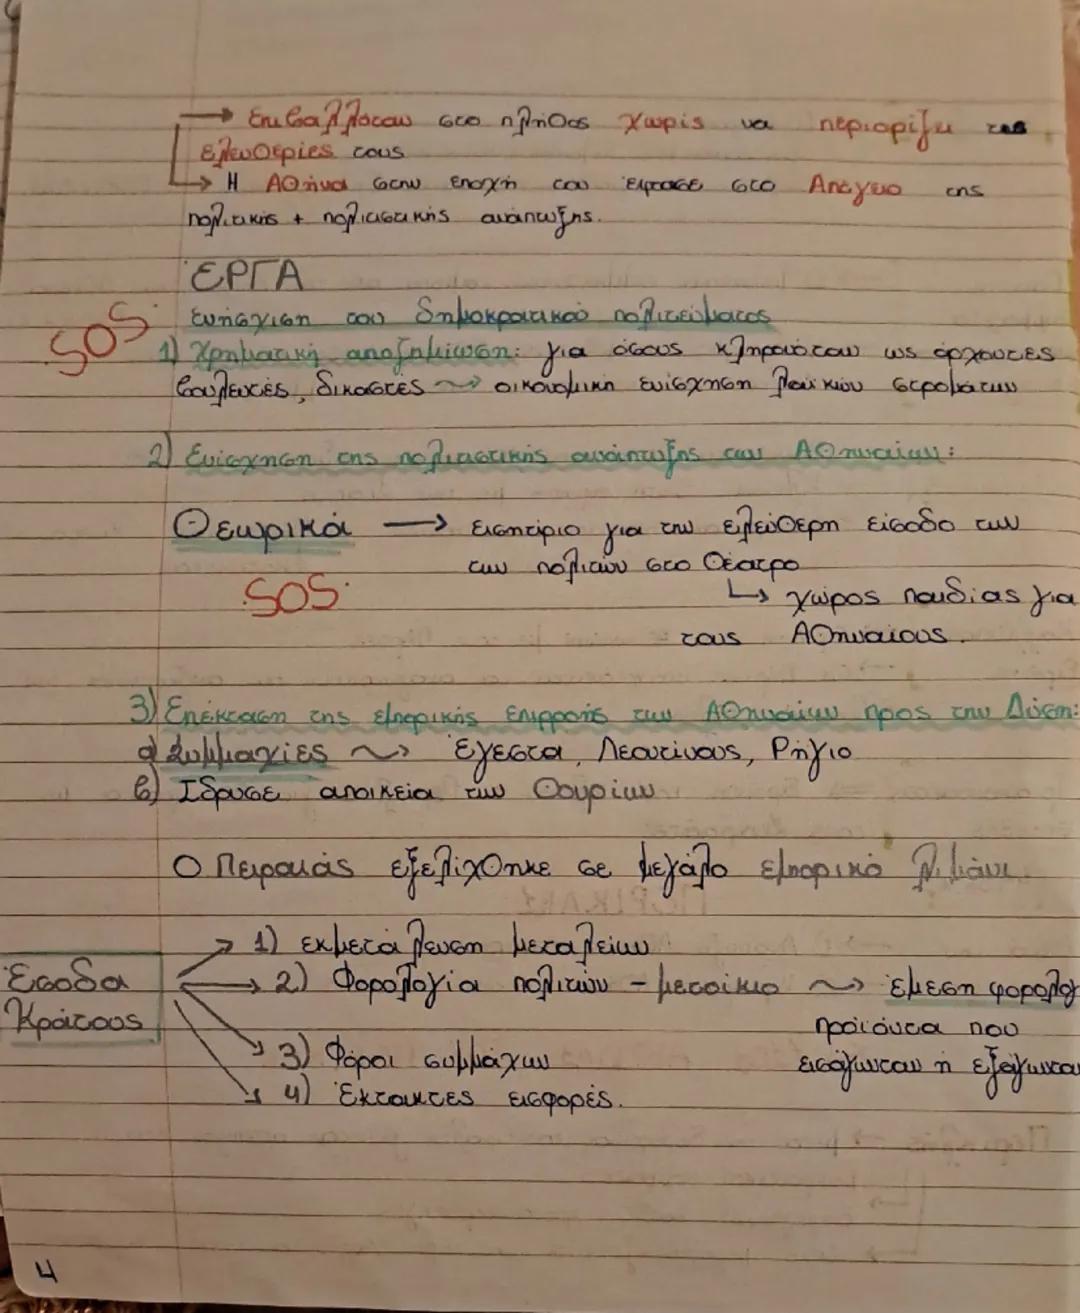 → Επιβαλλόταν στο πλήθος χωρίς να περιορίζει τις
ελευθερίες τους
→ Η Αθήνα στην εποχή του έφτασε στο Απόγειο της
πολιτικής + πολιτιστικής ανάπτυξης.
ΕΡΓΑ
Ενίσχυση του δημοκρατικού πολιτεύματος
SOS
1) Χρηματική αποζημίωση: για όσους κληρωνόταν ως άρχοντες
βουλευτές, δικαστές ~> οικονομική ενίσχηση λαϊκών στρομάτων
2) Ενίσχηση της πολιτιστικής ανάπτυξης των Αθηναίων:
Θεωρικά → εισητίριο για την ελεύθερη είσοδο των
των πολιτών στο Θέατρο
SOS
↳ χώρος παιδίας για
τους Αθηναίους.
3) Επέκταση της εμπορικής επιρροής των Αθηναίων προς την Δύση:
α) Συμμαχίες ~> Έγεστα, Λεοντίνους, Ρήγιο
β) Ίδρυσε αποικεία των Θουρίων
Ο Πειραιάς εξελίχθηκε σε μεγάλο εμπορικό λιμάνι.
→ 1) εκμετάλλευση μεταλείων
Έσοδα → 2) Φορολογία πολιτών - μετοίκων ~> έμεση φορολογ
Κράτους προϊόντα που
→ 3) Φόροι συμμάχων εισάγωνταν ή εξάγωνταν
→ 4) Έκτακτες εισφορές.
4